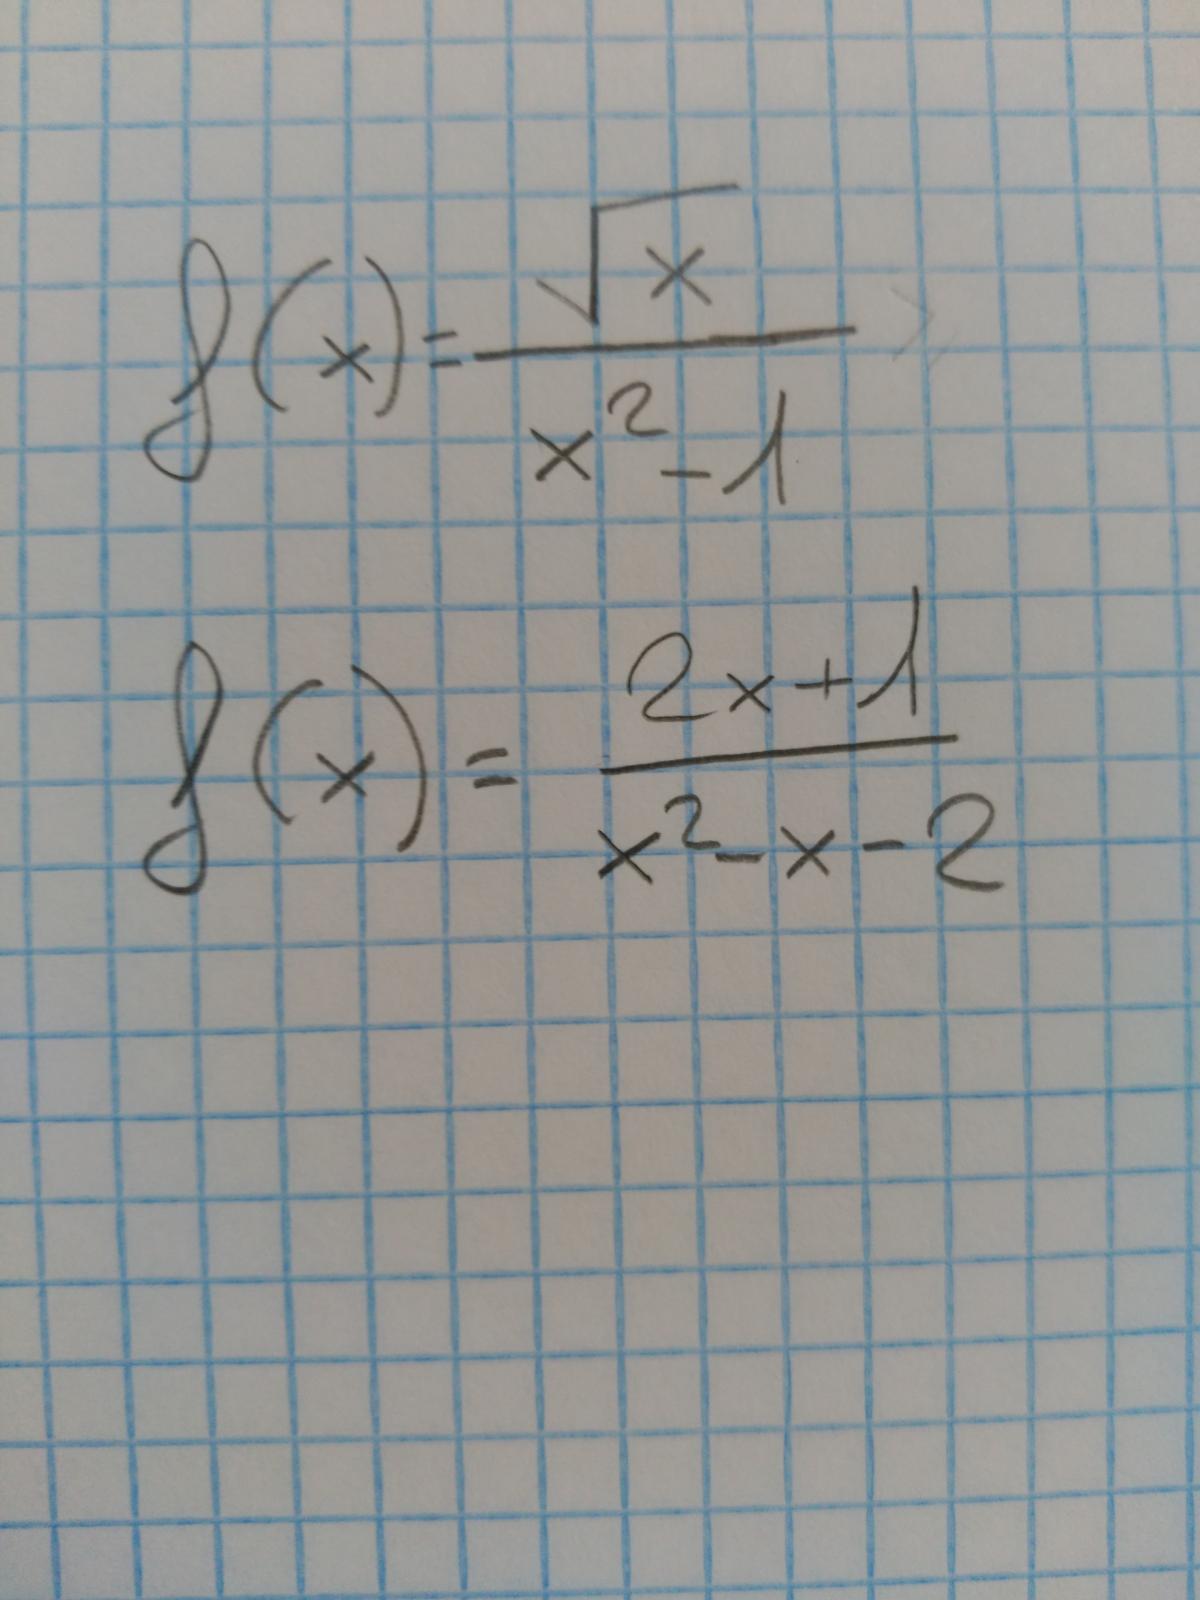 f(x)=√x/(x²-1)
f(x)=(2x+1)/(x²-x-2)